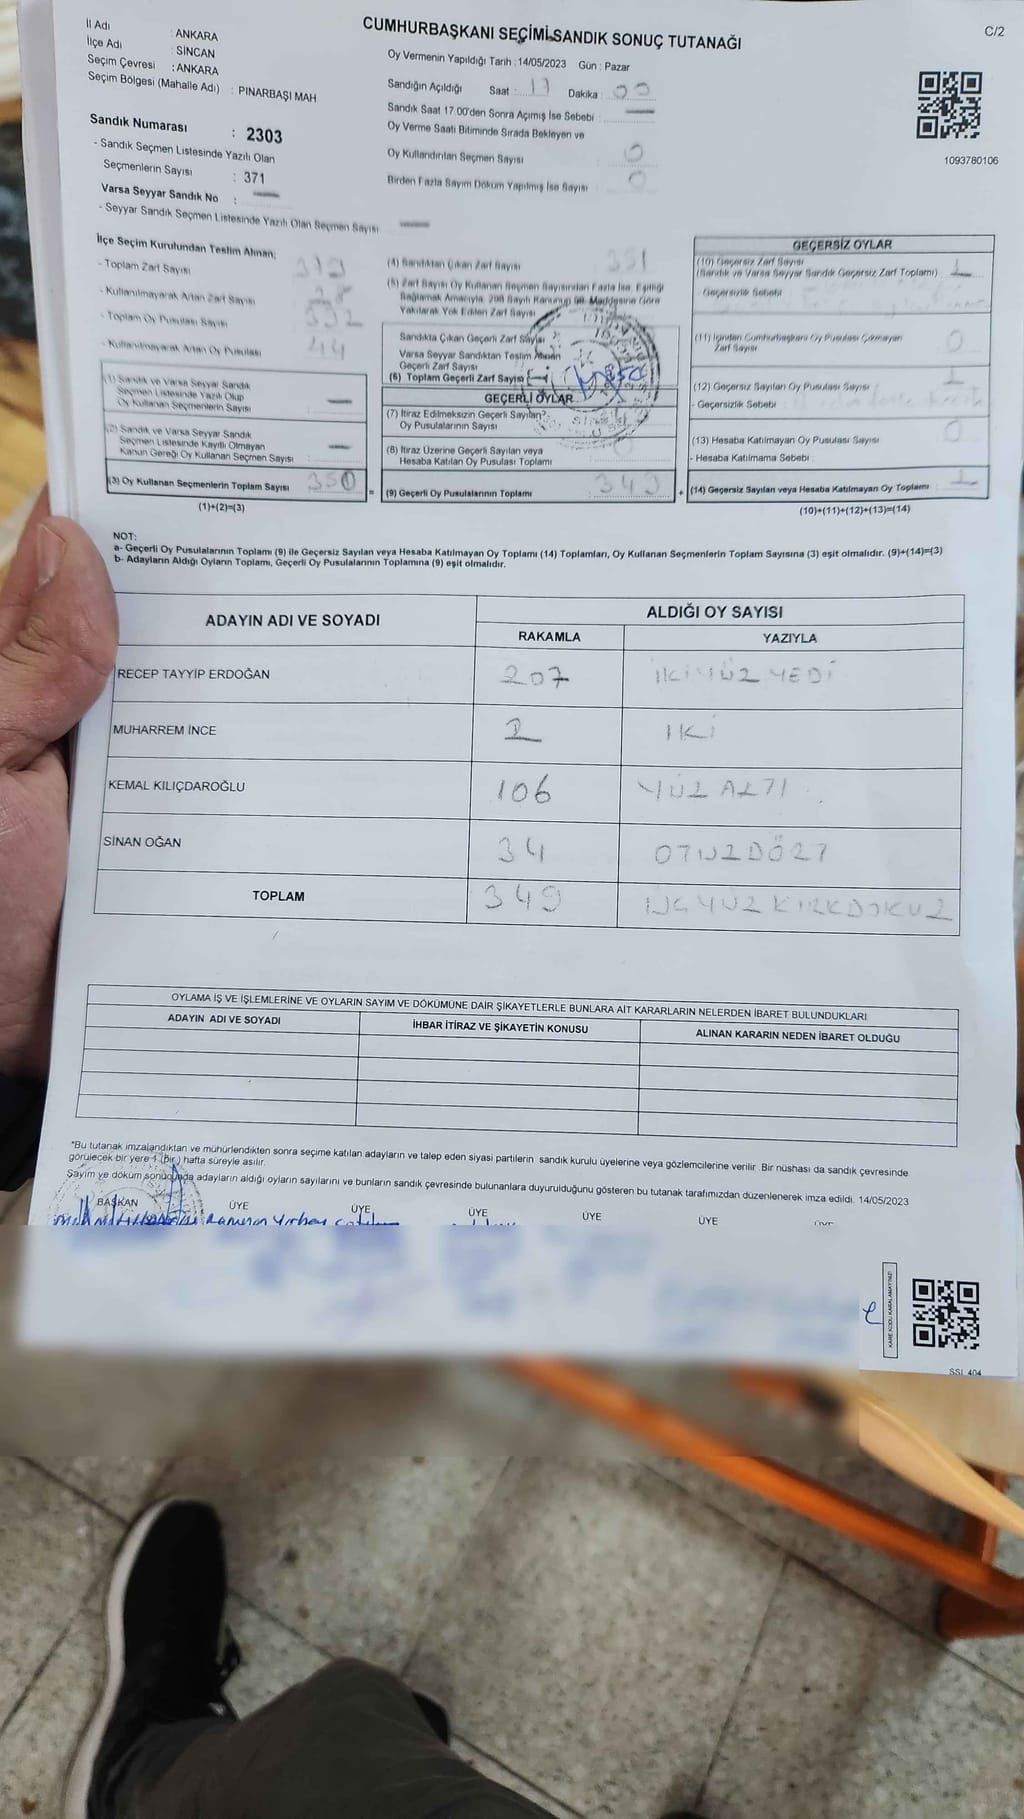 C/2
CUMHURBAŞKANI SEÇİMİ SANDIK SONUÇ TUTANAĞI
İl Adı : ANKARA
İlçe Adı : SİNCAN
Seçim Çevresi : ANKARA
Seçim Bölgesi (Mahalle Adı) : PINARBAŞI MAH
Oy Vermenin Yapıldığı Tarih : 14/05/2023 Gün : Pazar
Sandığın Açıldığı Saat : 17 Dakika : 00
Sandık Saat 17.00'den Sonra Açımış İse Sebebi :
Oy Verme Saati Bitiminde Sırada Bekleyen ve
Oy Kullandırılan Seçmen Sayısı : 0
Birden Fazla Sayım Döküm Yapılmış İse Sayısı : 0
1093780106
Sandık Numarası : 2303
- Sandık Seçmen Listesinde Yazılı Olan
Seçmenlerin Sayısı : 371
Varsa Seyyar Sandık No : —
- Seyyar Sandık Seçmen Listesinde Yazılı Olan Seçmen Sayısı —
İlçe Seçim Kurulundan Teslim Alınan;
- Toplam Zarf Sayısı
- Kullanılmayarak Artan Zarf Sayısı
- Toplam Oy Pusulası Sayısı
- Kullanılmayarak Artan Oy Pusulası 44
(1) Sandık ve Varsa Seyyar Sandık
Seçmen Listesinde Yazılı Olup
Oy Kullanan Seçmenlerin Sayısı —
(2) Sandık ve Varsa Seyyar Sandık
Seçmen Listesinde Kayıtlı Olmayan
Kanun Gereği Oy Kullanan Seçmen Sayısı —
(3) Oy Kullanan Seçmenlerin Toplam Sayısı 350
(1)+(2)=(3)
(4) Sandıktan Çıkan Zarf Sayısı 351
(5) Zarf Sayısı Oy Kullanan Seçmen Sayısından Fazla İse, Eşitliği
Sağlamak Amacıyla, 298 Sayılı Kanunun 98. Maddesine Göre
Yakılarak Yok Edilen Zarf Sayısı
Sandıkta Çıkan Geçerli Zarf Sayısı
Varsa Seyyar Sandıktan Teslim Alınan
Geçerli Zarf Sayısı
(6) Toplam Geçerli Zarf Sayısı
GEÇERLİ OYLAR
(7) İtiraz Edilmeksizin Geçerli Sayılan
Oy Pusulalarının Sayısı
(8) İtiraz Üzerine Geçerli Sayılan veya
Hesaba Katılan Oy Pusulası Toplamı
(9) Geçerli Oy Pusulalarının Toplamı 349
GEÇERSİZ OYLAR
(10) Geçersiz Zarf Sayısı
(Sandık ve Varsa Seyyar Sandık Geçersiz Zarf Toplamı) 1
- Geçersizlik Sebebi :
(11) İçinden Cumhurbaşkanı Oy Pusulası Çıkmayan
Zarf Sayısı 0
(12) Geçersiz Sayılan Oy Pusulası Sayısı 1
- Geçersizlik Sebebi :
(13) Hesaba Katılmayan Oy Pusulası Sayısı 0
- Hesaba Katılmama Sebebi :
(14) Geçersiz Sayılan veya Hesaba Katılmayan Oy Toplamı 1
(10)+(11)+(12)+(13)=(14)
NOT:
a- Geçerli Oy Pusulalarının Toplamı (9) ile Geçersiz Sayılan veya Hesaba Katılmayan Oy Toplamı (14) Toplamları, Oy Kullanan Seçmenlerin Toplam Sayısına (3) eşit olmalıdır. (9)+(14)=(3)
b- Adayların Aldığı Oyların Toplamı, Geçerli Oy Pusulalarının Toplamına (9) eşit olmalıdır.
ADAYIN ADI VE SOYADI ALDIĞI OY SAYISI
RAKAMLA YAZIYLA
RECEP TAYYİP ERDOĞAN 207 İKİYÜZ YEDİ
MUHARREM İNCE 2 İKİ
KEMAL KILIÇDAROĞLU 106 YÜZ ALTI
SİNAN OĞAN 34 OTUZ DÖRT
TOPLAM 349 ÜÇ YÜZ KIRK DOKUZ
OYLAMA İŞ VE İŞLEMLERİNE VE OYLARIN SAYIM VE DÖKÜMÜNE DAİR ŞİKAYETLERLE BUNLARA AİT KARARLARIN NELERDEN İBARET BULUNDUKLARI
ADAYIN ADI VE SOYADI İHBAR İTİRAZ VE ŞİKAYETİN KONUSU ALINAN KARARIN NEDEN İBARET OLDUĞU
*Bu tutanak imzalandıktan ve mühürlendikten sonra seçime katılan adayların ve talep eden siyasi partilerin sandık kurulu üyelerine veya gözlemcilerine verilir. Bir nüshası da sandık çevresinde
görülecek bir yere 1 (bir) hafta süreyle asılır.
Sayım ve döküm sonucunda adayların aldığı oyların sayılarını ve bunların sandık çevresinde bulunanlara duyurulduğunu gösteren bu tutanak tarafımızdan düzenlenerek imza edildi. 14/05/2023
BAŞKAN ÜYE ÜYE ÜYE ÜYE ÜYE ÜYE
KARE KODU KARALAMAYINIZ!
SSI 404